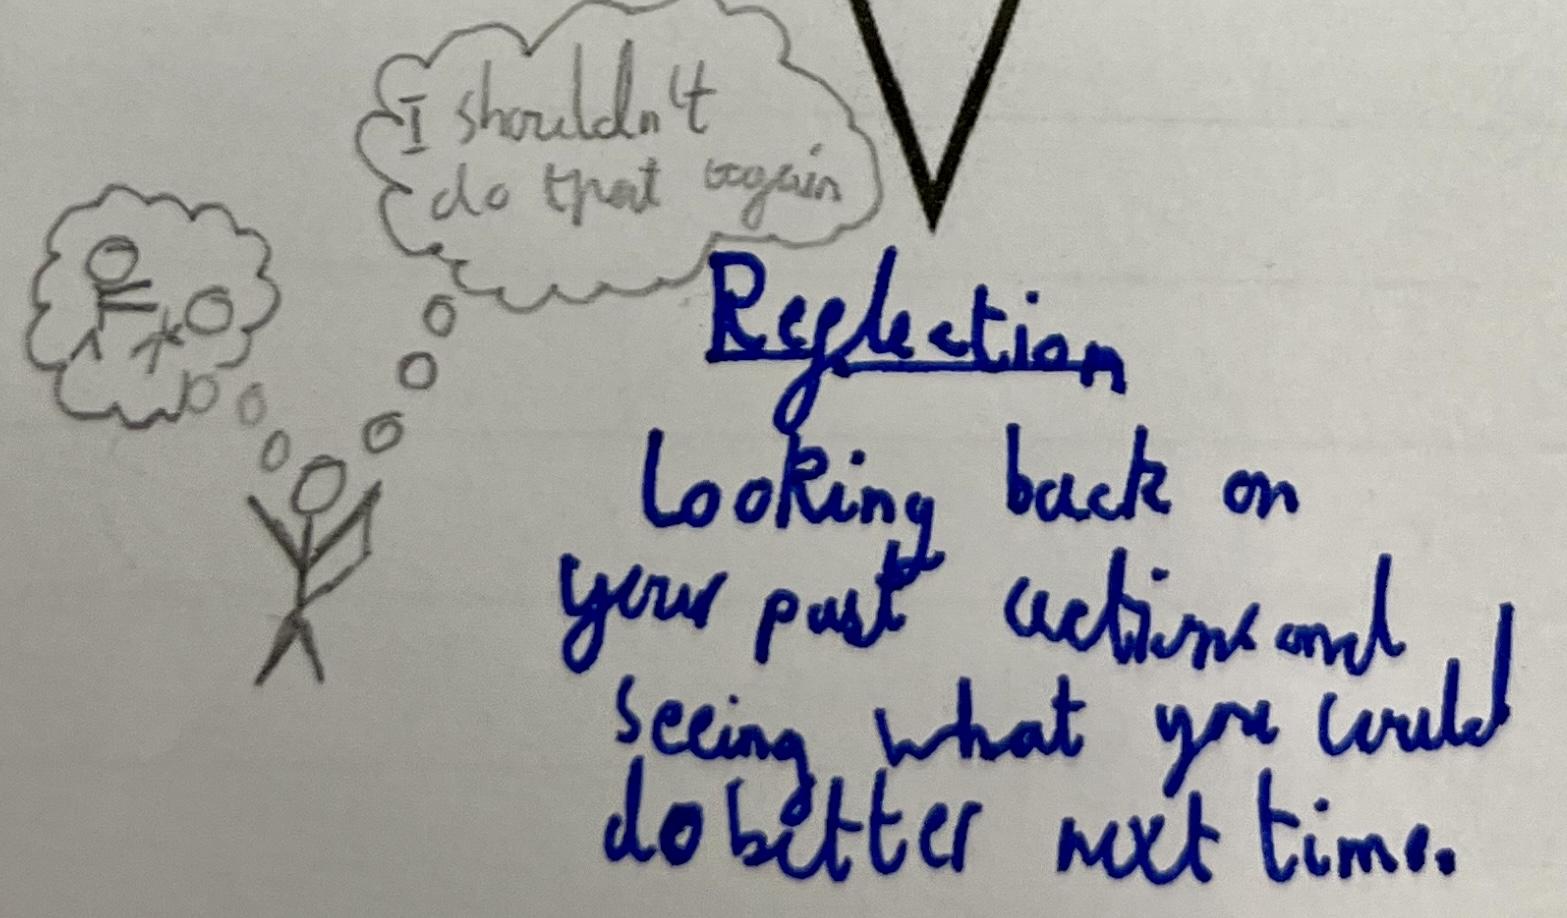 I shouldn't
do that again
Reflection
Looking back on
your past actions and
seeing what you could
do better next time.